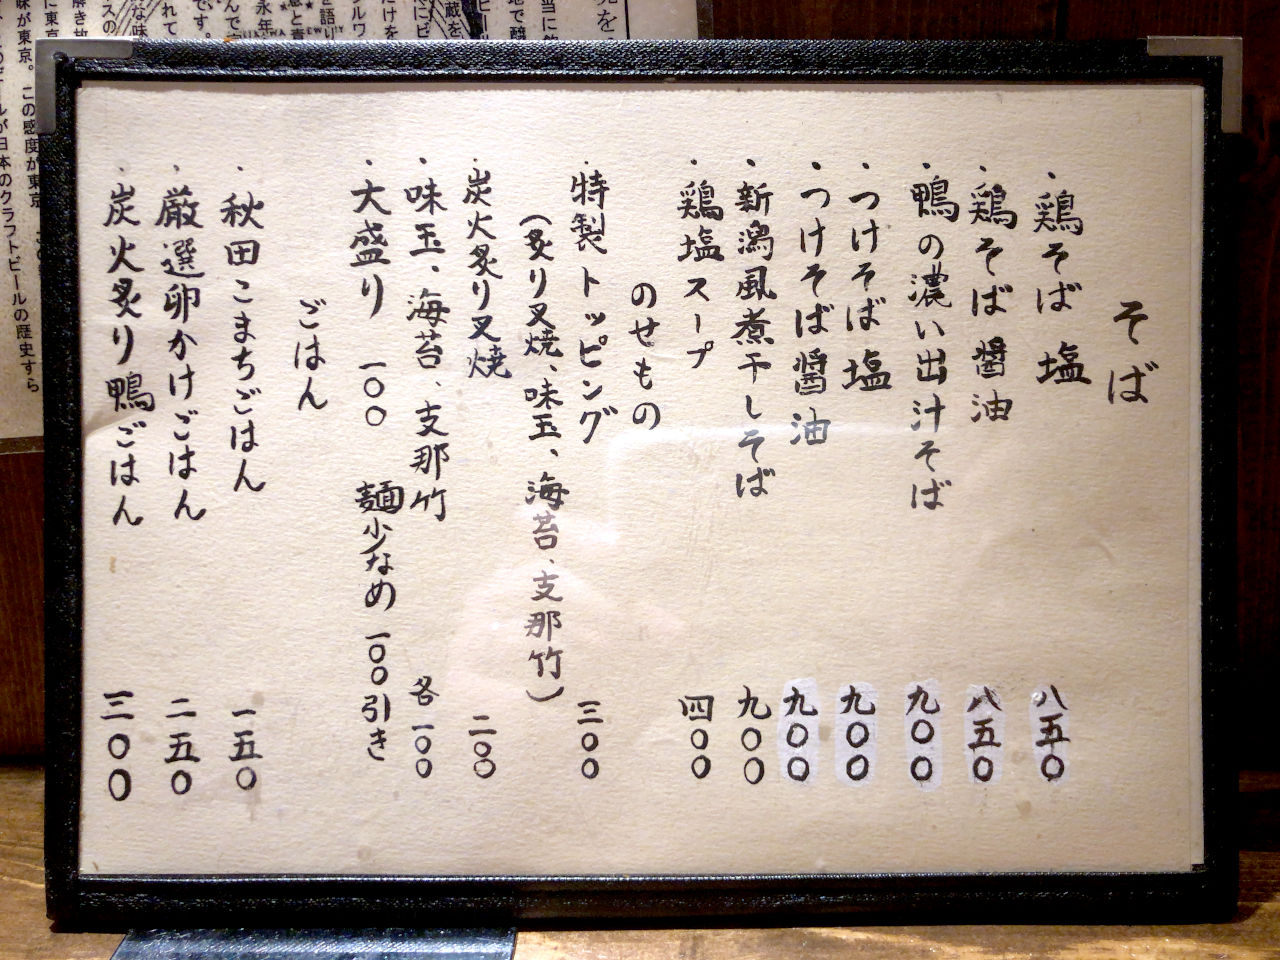 そば
・鶏そば 塩 八五〇
・鶏そば 醤油 八五〇
・鴨の濃い出汁そば 九〇〇
・つけそば 塩 九〇〇
・つけそば 醤油 九〇〇
・新潟風煮干しそば 九〇〇
・鶏塩スープ 四〇〇
のせもの
・特製トッピング 三〇〇
(炙り叉焼、味玉、海苔、支那竹)
・炭火炙り叉焼 二〇〇
・味玉、海苔、支那竹 各一〇〇
・大盛り 一〇〇 麺少なめ 一〇〇引き
ごはん
・秋田こまちごはん 一五〇
・厳選卵かけごはん 二五〇
・炭火炙り鴨ごはん 三〇〇